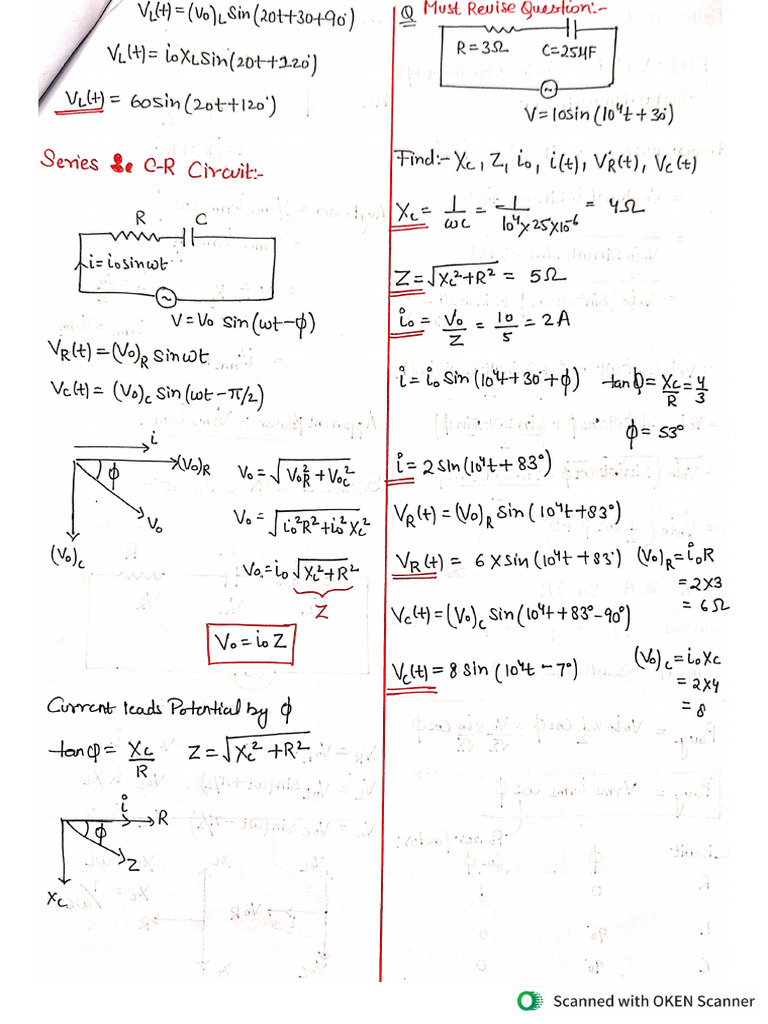 V_L(t) = (V₀)_L Sin(20t+30+90°)
V_L(t) = i₀X_L Sin(20t+120°)
V_L(t) = 60 sin(20t+120°)
Series C-R Circuit:-
R C
i = i₀ sin ωt
V = V₀ sin(ωt-φ)
V_R(t) = (V₀)_R Sin ωt
V_C(t) = (V₀)_C sin(ωt-π/2)
i
(V₀)_R
φ
V₀
(V₀)_C
V₀ = √(V₀_R² + V₀_C²)
V₀ = √(i₀²R² + i₀²X_C²)
V₀ = i₀ √(X_C² + R²)
Z
V₀ = i₀ Z
Current leads Potential by φ
tanφ = X_C/R Z = √(X_C² + R²)
i
R
φ
Z
X_C
Q Must Revise Question:-
R = 3Ω C = 25μF
V = 10sin(10⁴t + 30°)
Find:- X_C, Z, i₀, i(t), V_R(t), V_C(t)
X_C = 1/ωC = 1/10⁴×25×10⁻⁶ = 4Ω
Z = √(X_C² + R²) = 5Ω
i₀ = V₀/Z = 10/5 = 2A
i = i₀ Sin(10⁴t + 30 + φ) tanφ = X_C/R = 4/3
φ = 53°
i = 2 sin(10⁴t + 83°)
V_R(t) = (V₀)_R Sin(10⁴t + 83°)
V_R(t) = 6 × sin(10⁴t + 83°) (V₀)_R = i₀R
= 2×3
= 6Ω
V_C(t) = (V₀)_C sin(10⁴t + 83° - 90°)
V_C(t) = 8 sin(10⁴t - 7°) (V₀)_C = i₀X_C
= 2×4
= 8
Scanned with OKEN Scanner